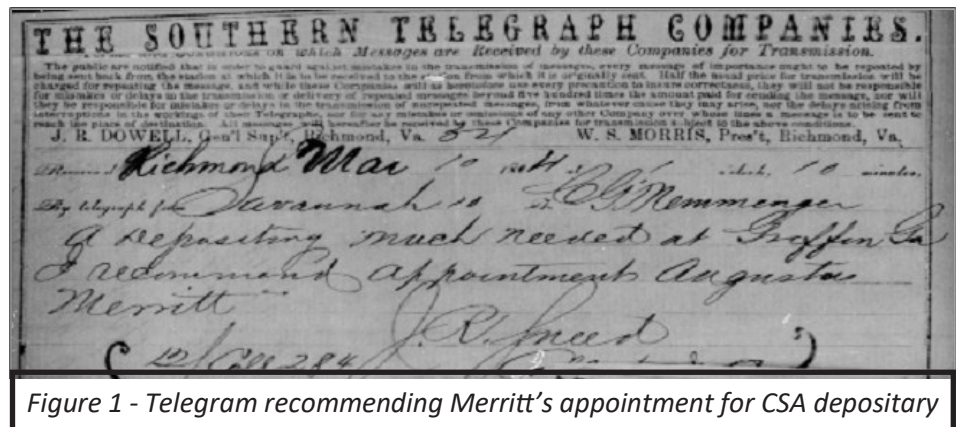 THE SOUTHERN TELEGRAPH COMPANIES.
on which Messages are Received by these Companies for Transmission.
The public are notified that in order to guard against mistakes in the transmission of messages, every message of importance ought to be repeated by
being sent back from the station at which it is to be received to the station from which it is originally sent. Half the usual price for transmission will be
charged for repeating the message, and while these Companies will as heretofore use every precaution to insure correctness, they will not be responsible
for mistakes or delays in the transmission or delivery of repeated messages beyond five hundred times the amount paid for sending the message, nor will
they be responsible for mistakes or delays in the transmission of unrepeated messages, from whatever cause they may arise, nor for delays arising from
interruptions in the workings of their Telegraphs, nor for any mistakes or omissions of any other Company over whose lines a message is to be sent to
reach the place of destination. All messages will hereafter be received by these Companies for transmission subject to the above conditions.
J. R. DOWELL, Gen'l Sup't, Richmond, Va. W. S. MORRIS, Pres't, Richmond, Va,
Received Richmond Mar 10 1864 at 10 minutes,
By telegraph from Savannah 10 To C G Memmenger
A Depositing much needed at Griffin Ga
I recommend appointment Augustus
Merritt
J. R. Sneed
12/ Coll 284
Figure 1 - Telegram recommending Merritt's appointment for CSA depositary